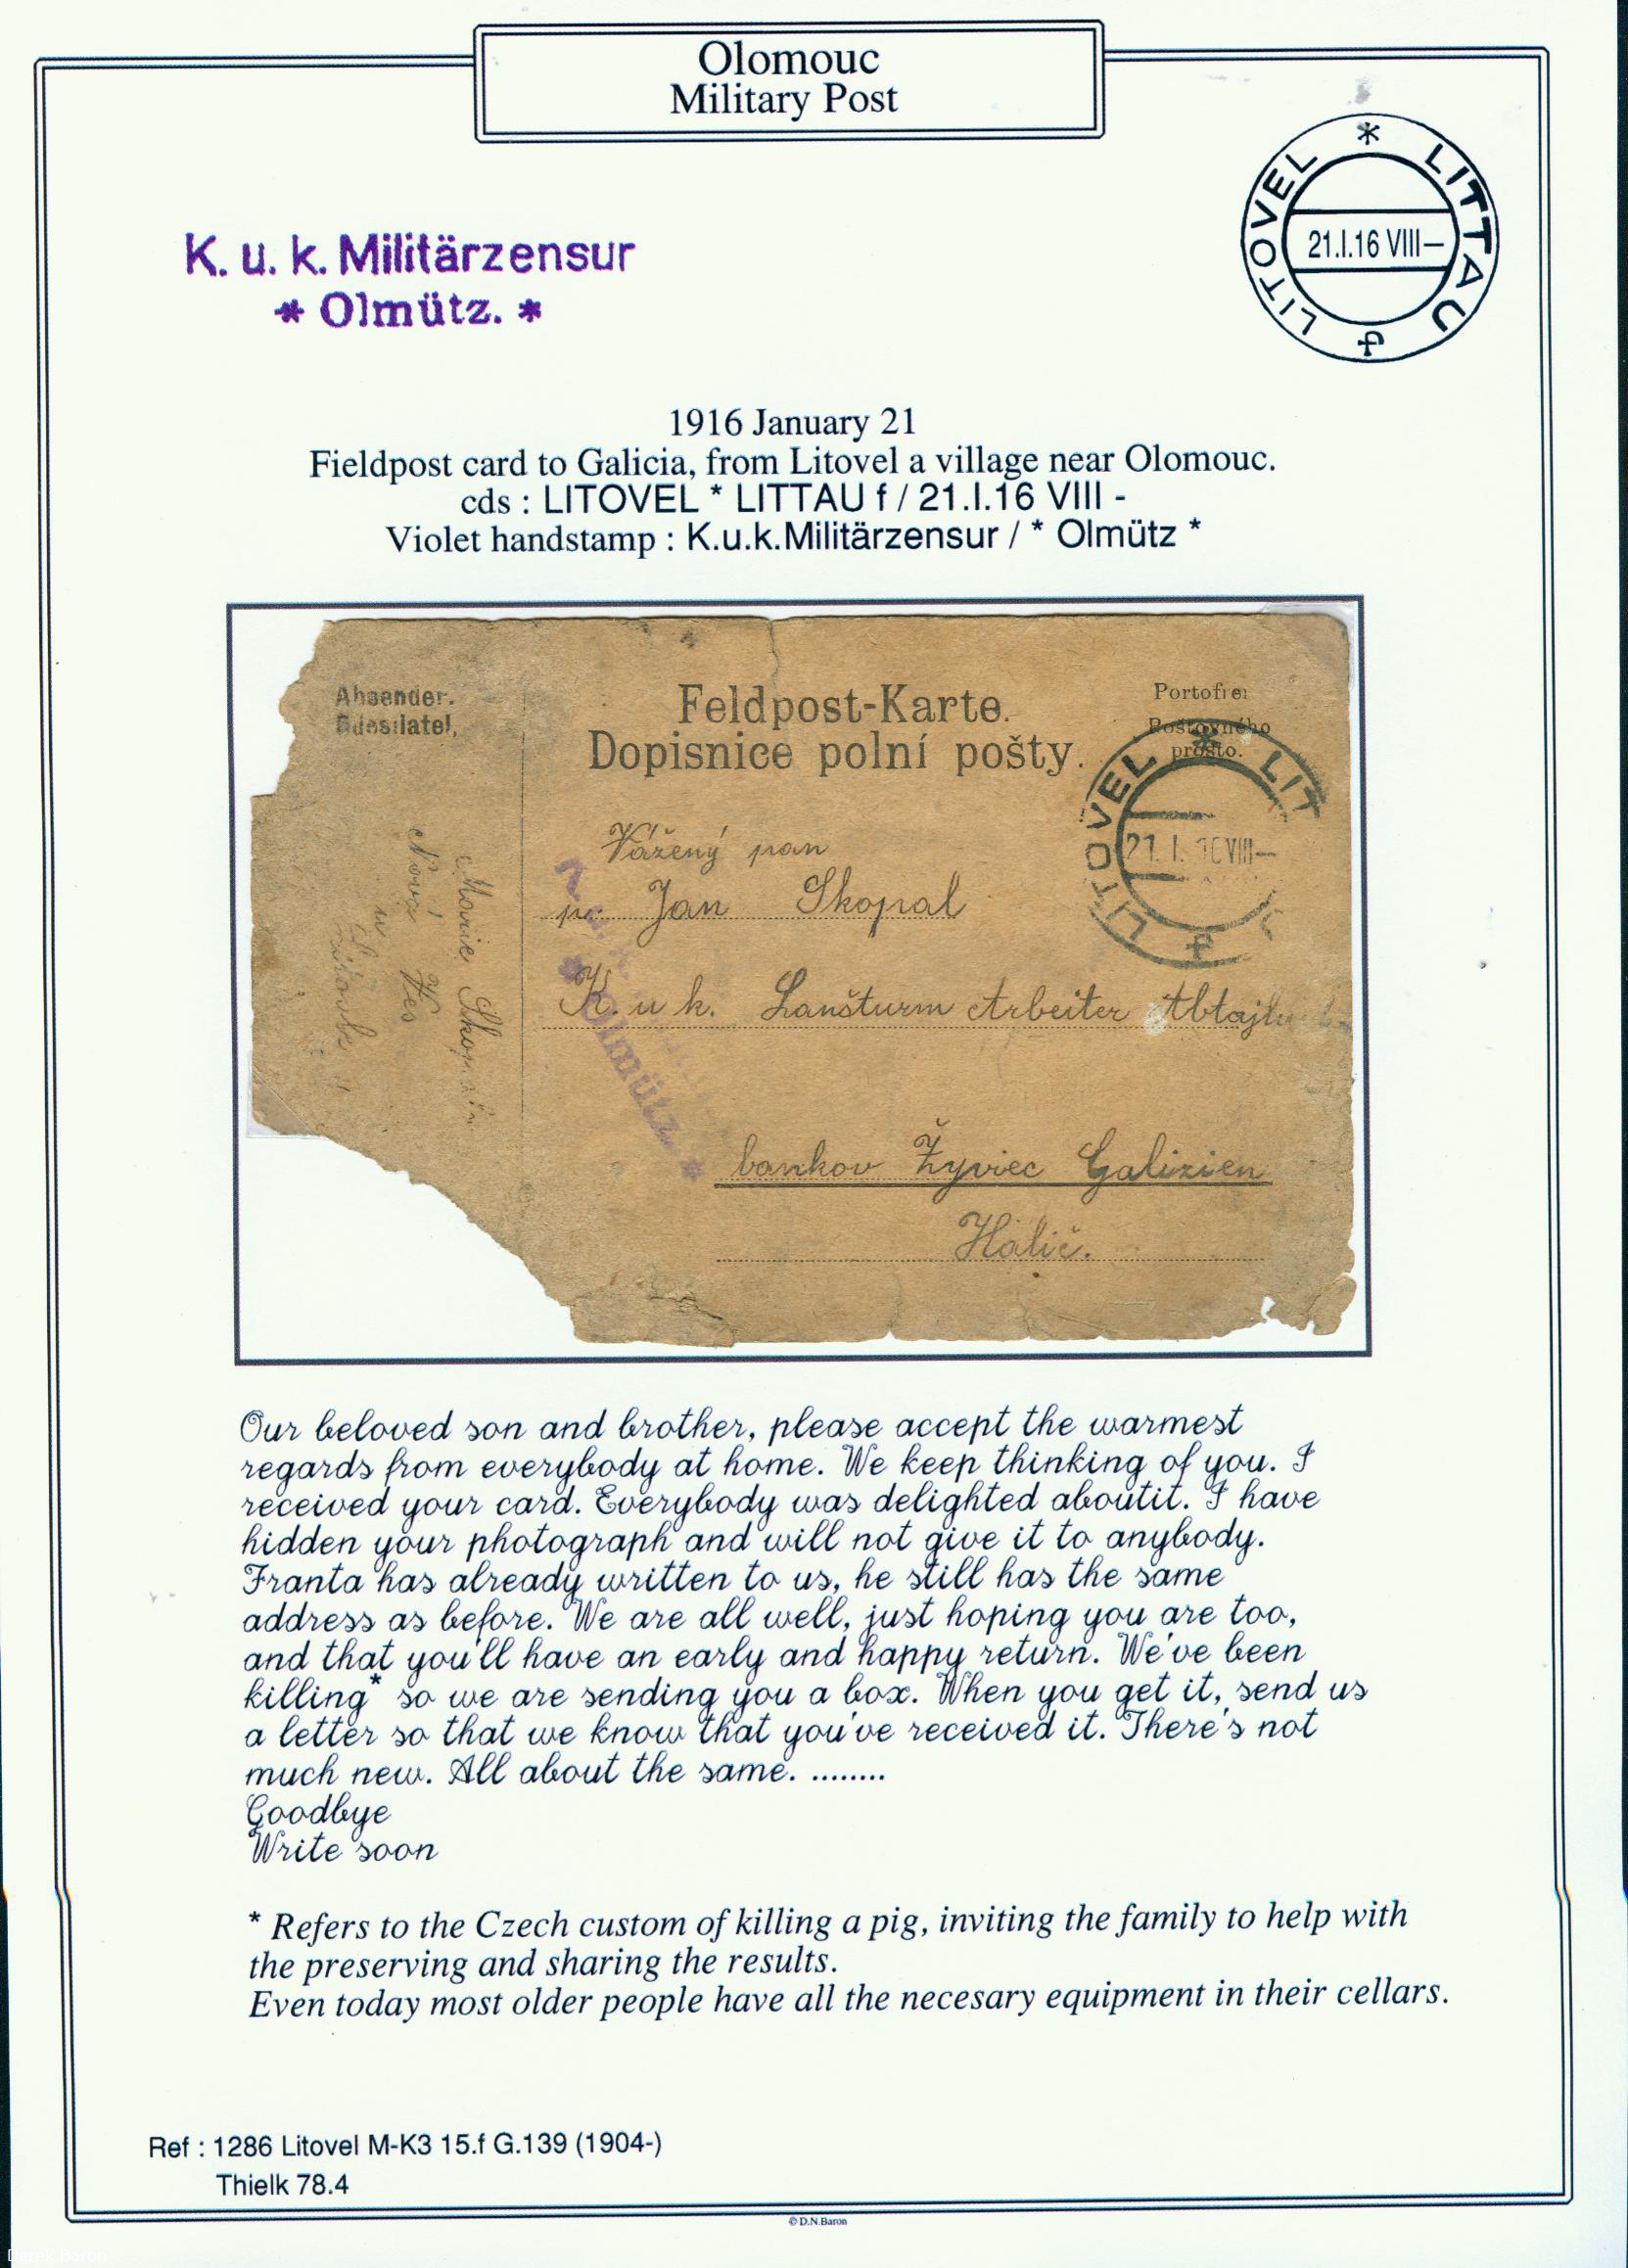 Olomouc
Military Post
K. u. k. Militärzensur
* Olmütz. *
LITOVEL * LITTAU
21.I.16 VIII–
f
1916 January 21
Fieldpost card to Galicia, from Litovel a village near Olomouc.
cds : LITOVEL * LITTAU f / 21.I.16 VIII -
Violet handstamp : K.u.k.Militärzensur / * Olmütz *
Absender.
Feldpost-Karte.
Dopisnice polní pošty.
Portofrei
Poštovného
prosto.
LITOVEL * LIT
21. I. VIII–
f
Vážený pan
p. Jan Skopal
K. u k. Lanšturm Arbeiter
* Olmütz. *
bankov Żywiec Galizien
Halič.
Marie
Nová Ves
u
Our beloved son and brother, please accept the warmest
regards from everybody at home. We keep thinking of you. I
received your card. Everybody was delighted aboutit. I have
hidden your photograph and will not give it to anybody.
Franta has already written to us, he still has the same
address as before. We are all well, just hoping you are too,
and that you'll have an early and happy return. We've been
killing* so we are sending you a box. When you get it, send us
a letter so that we know that you've received it. There's not
much new. All about the same. ........
Goodbye
Write soon
* Refers to the Czech custom of killing a pig, inviting the family to help with
the preserving and sharing the results.
Even today most older people have all the necesary equipment in their cellars.
Ref : 1286 Litovel M-K3 15.f G.139 (1904-)
Thielk 78.4
© D.N.Baron
Derek Baron